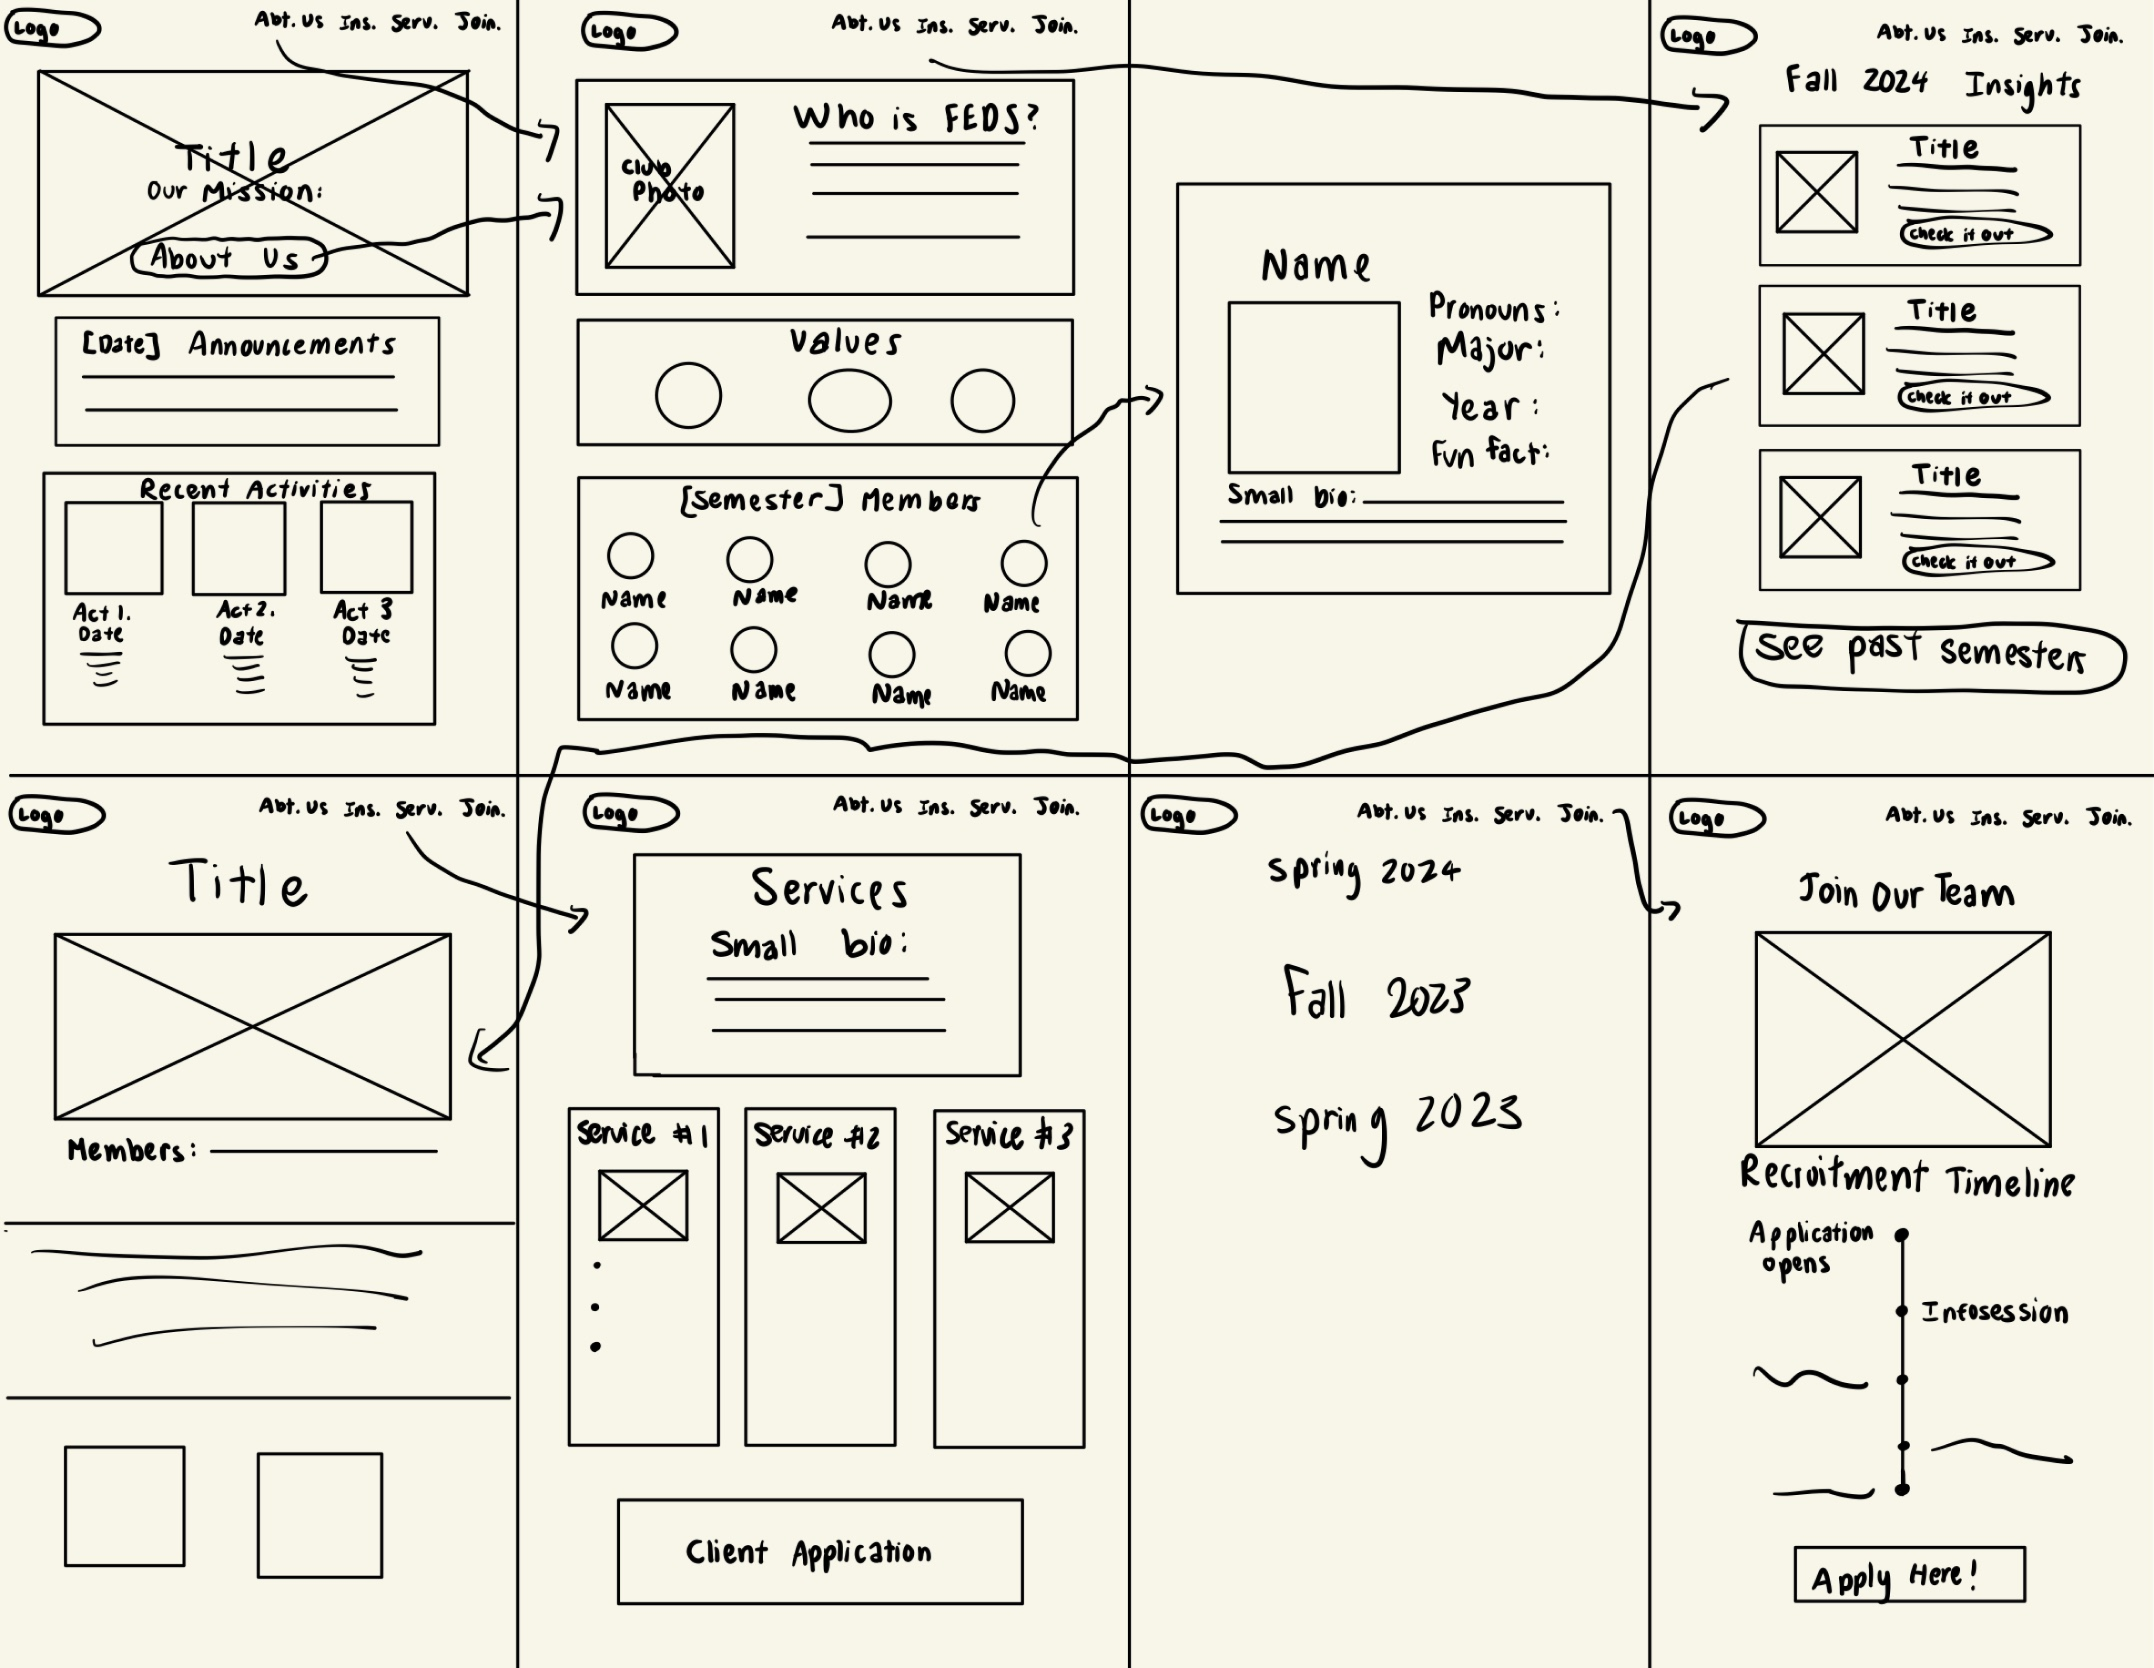 Logo
Abt. Us Ins. Serv. Join.
Title
Our Mission:
About Us
[Date] Announcements
Recent Activities
Act 1. Act 2. Act 3
Date Date Date
Logo
Abt. Us Ins. Serv. Join.
Who is FEDS?
Club
Photo
Values
[Semester] Members
Name Name Name Name
Name Name Name Name
Name
Pronouns:
Major:
Year:
Fun fact:
Small bio:
Logo
Abt. Us Ins. Serv. Join.
Fall 2024 Insights
Title
Check it out
Title
Check it out
Title
Check it out
See past semesters
Logo
Abt. Us Ins. Serv. Join.
Title
Members:
Logo
Abt. Us Ins. Serv. Join.
Services
Small bio:
Service #1 Service #2 Service #3
Client Application
Logo
Abt. Us Ins. Serv. Join.
Spring 2024
Fall 2023
Spring 2023
Logo
Abt. Us Ins. Serv. Join.
Join Our Team
Recruitment Timeline
Application
opens
Infosession
Apply Here!